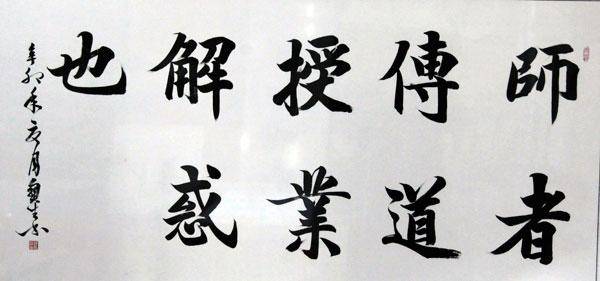 師者
傳道
授業
解惑
也
辛卯年夏月